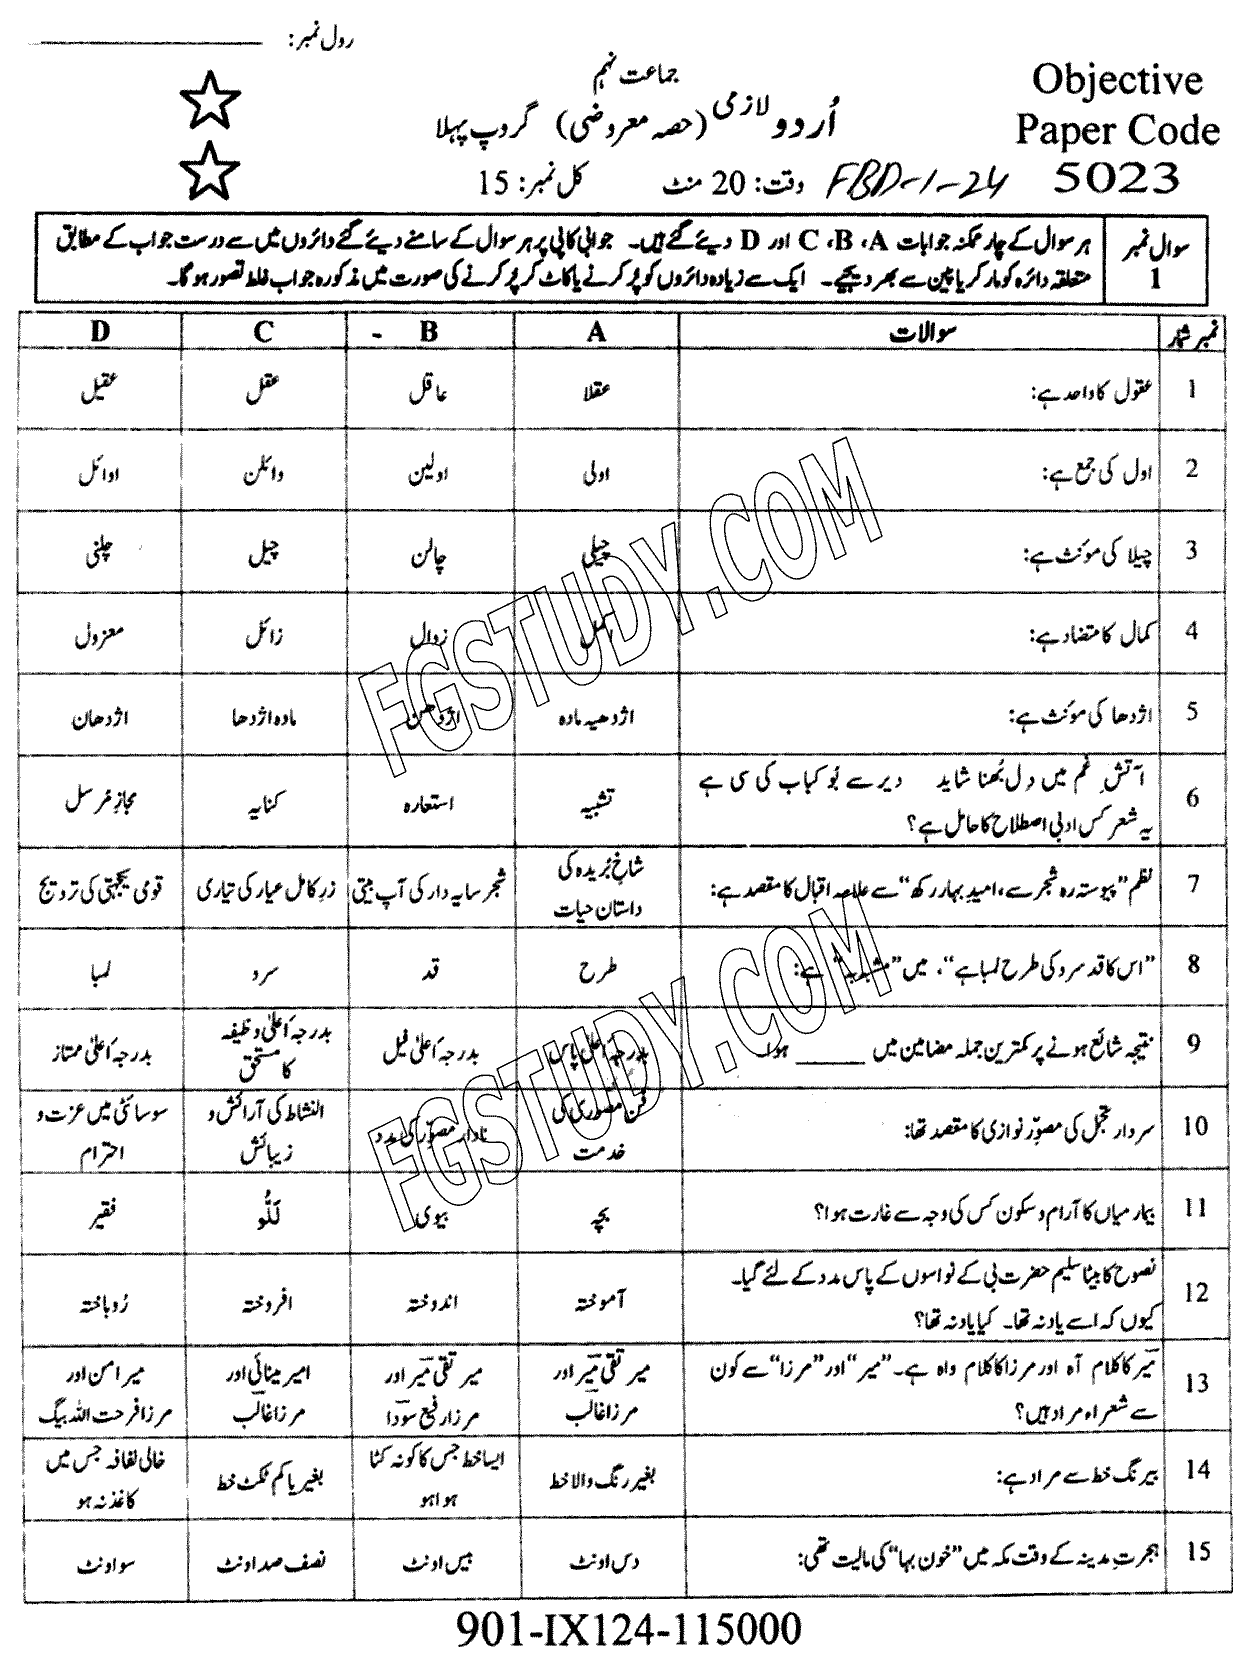 رول نمبر:
جماعت نہم
Objective
اُردو لازمی (حصہ معروضی) گروپ پہلا
Paper Code
وقت: 20 منٹ کل نمبر: 15
FBD-1-24
5023
سوال نمبر 1
ہر سوال کے چار ممکنہ جوابات A، B، C اور D دیئے گئے ہیں۔ جوابی کاپی پر ہر سوال کے سامنے دیئے گئے دائروں میں سے درست جواب کے مطابق
متعلقہ دائرہ کو مارکر یا پین سے بھر دیجیے۔ ایک سے زیادہ دائروں کو پُر کرنے یا کاٹ کر پُر کرنے کی صورت میں مذکورہ جواب غلط تصور ہوگا۔
نمبر شمار سوالات A B C D
1 عقول کا واحد ہے: عقلا عاقل عقل عقیل
2 اول کی جمع ہے: اولی اولین وائلن اوائل
3 چیلا کی مونث ہے: چیلی چالن چیل چلنی
4 کمال کا متضاد ہے: اکمل زوال زائل معزول
5 اژدھا کی مونث ہے: اژدھیہ مادہ اژدھن مادہ اژدھا اژدھان
6 آتشِ غم میں دل بُھنا شاید دیر سے بُو کباب کی سی ہے
یہ شعر کس ادبی اصطلاح کا حامل ہے؟ تشبیہ استعارہ کنایہ مجاز مرسل
7 نظم "پیوستہ رہ شجر سے، امیدِ بہار رکھ" سے علامہ اقبال کا مقصد ہے: شاخِ بُریدہ کی داستان حیات شجر سایہ دار کی آپ بیتی زرِ کامل عیار کی تیاری قومی یکجہتی کی ترویج
8 "اس کا قد سرو کی طرح لمبا ہے"، میں "مشبہ بہ" ہے: طرح قد سرو لمبا
9 نتیجہ شائع ہونے پر کمترین جملہ مضامین میں ______ ہوا۔ بدرجہ اعلیٰ پاس بدرجہ اعلیٰ فیل بدرجہ اعلیٰ وظیفہ کا مستحق بدرجہ اعلیٰ ممتاز
10 سردار تجمل کی مصوّر نوازی کا مقصد تھا: فنِ مصوری کی خدمت نادار مصوّر کی مدد النشاط کی آرائش و زیبائش سوسائٹی میں عزت و احترام
11 بیمار میاں کا آرام و سکون کس کی وجہ سے غارت ہوا؟ بچہ بیوی لَلُّو فقیر
12 نصوح کا بیٹا سلیم حضرت بی کے نواسوں کے پاس مدد کے لئے گیا۔
کیوں کہ اسے یاد نہ تھا۔ کیا یاد نہ تھا؟ آموختہ اندوختہ افروختہ رُوباختہ
13 میر کا کلام آہ اور مرزا کا کلام واہ ہے۔ "میر" اور "مرزا" سے کون
سے شعراء مراد ہیں؟ میر تقی میر اور مرزا غالب میر تقی میر اور مرزا رفیع سودا امیر مینائی اور مرزا غالب میر امن اور مرزا فرحت اللہ بیگ
14 بیرنگ خط سے مراد ہے: بغیر رنگ والا خط ایسا خط جس کا کونہ کٹا ہوا ہو بغیر یا کم ٹکٹ خط خالی لفافہ جس میں کاغذ نہ ہو
15 ہجرتِ مدینہ کے وقت مکہ میں "خون بہا" کی مالیت تھی: دس اونٹ بیس اونٹ نصف صد اونٹ سو اونٹ
FGSTUDY.COM
FGSTUDY.COM
901-IX124-115000